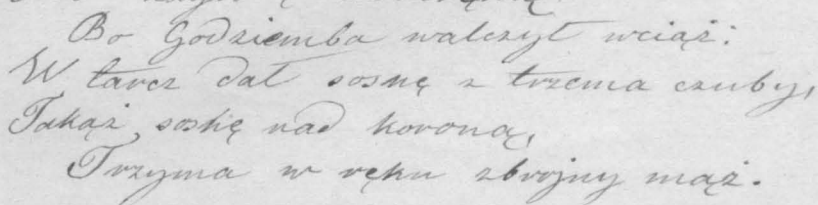 Bo Godziemba walczył wciąż:
W tarcz dał sosnę z trzema czuby,
Takąż sosnę nad koroną,
Trzyma w ręku zbrojny mąż.